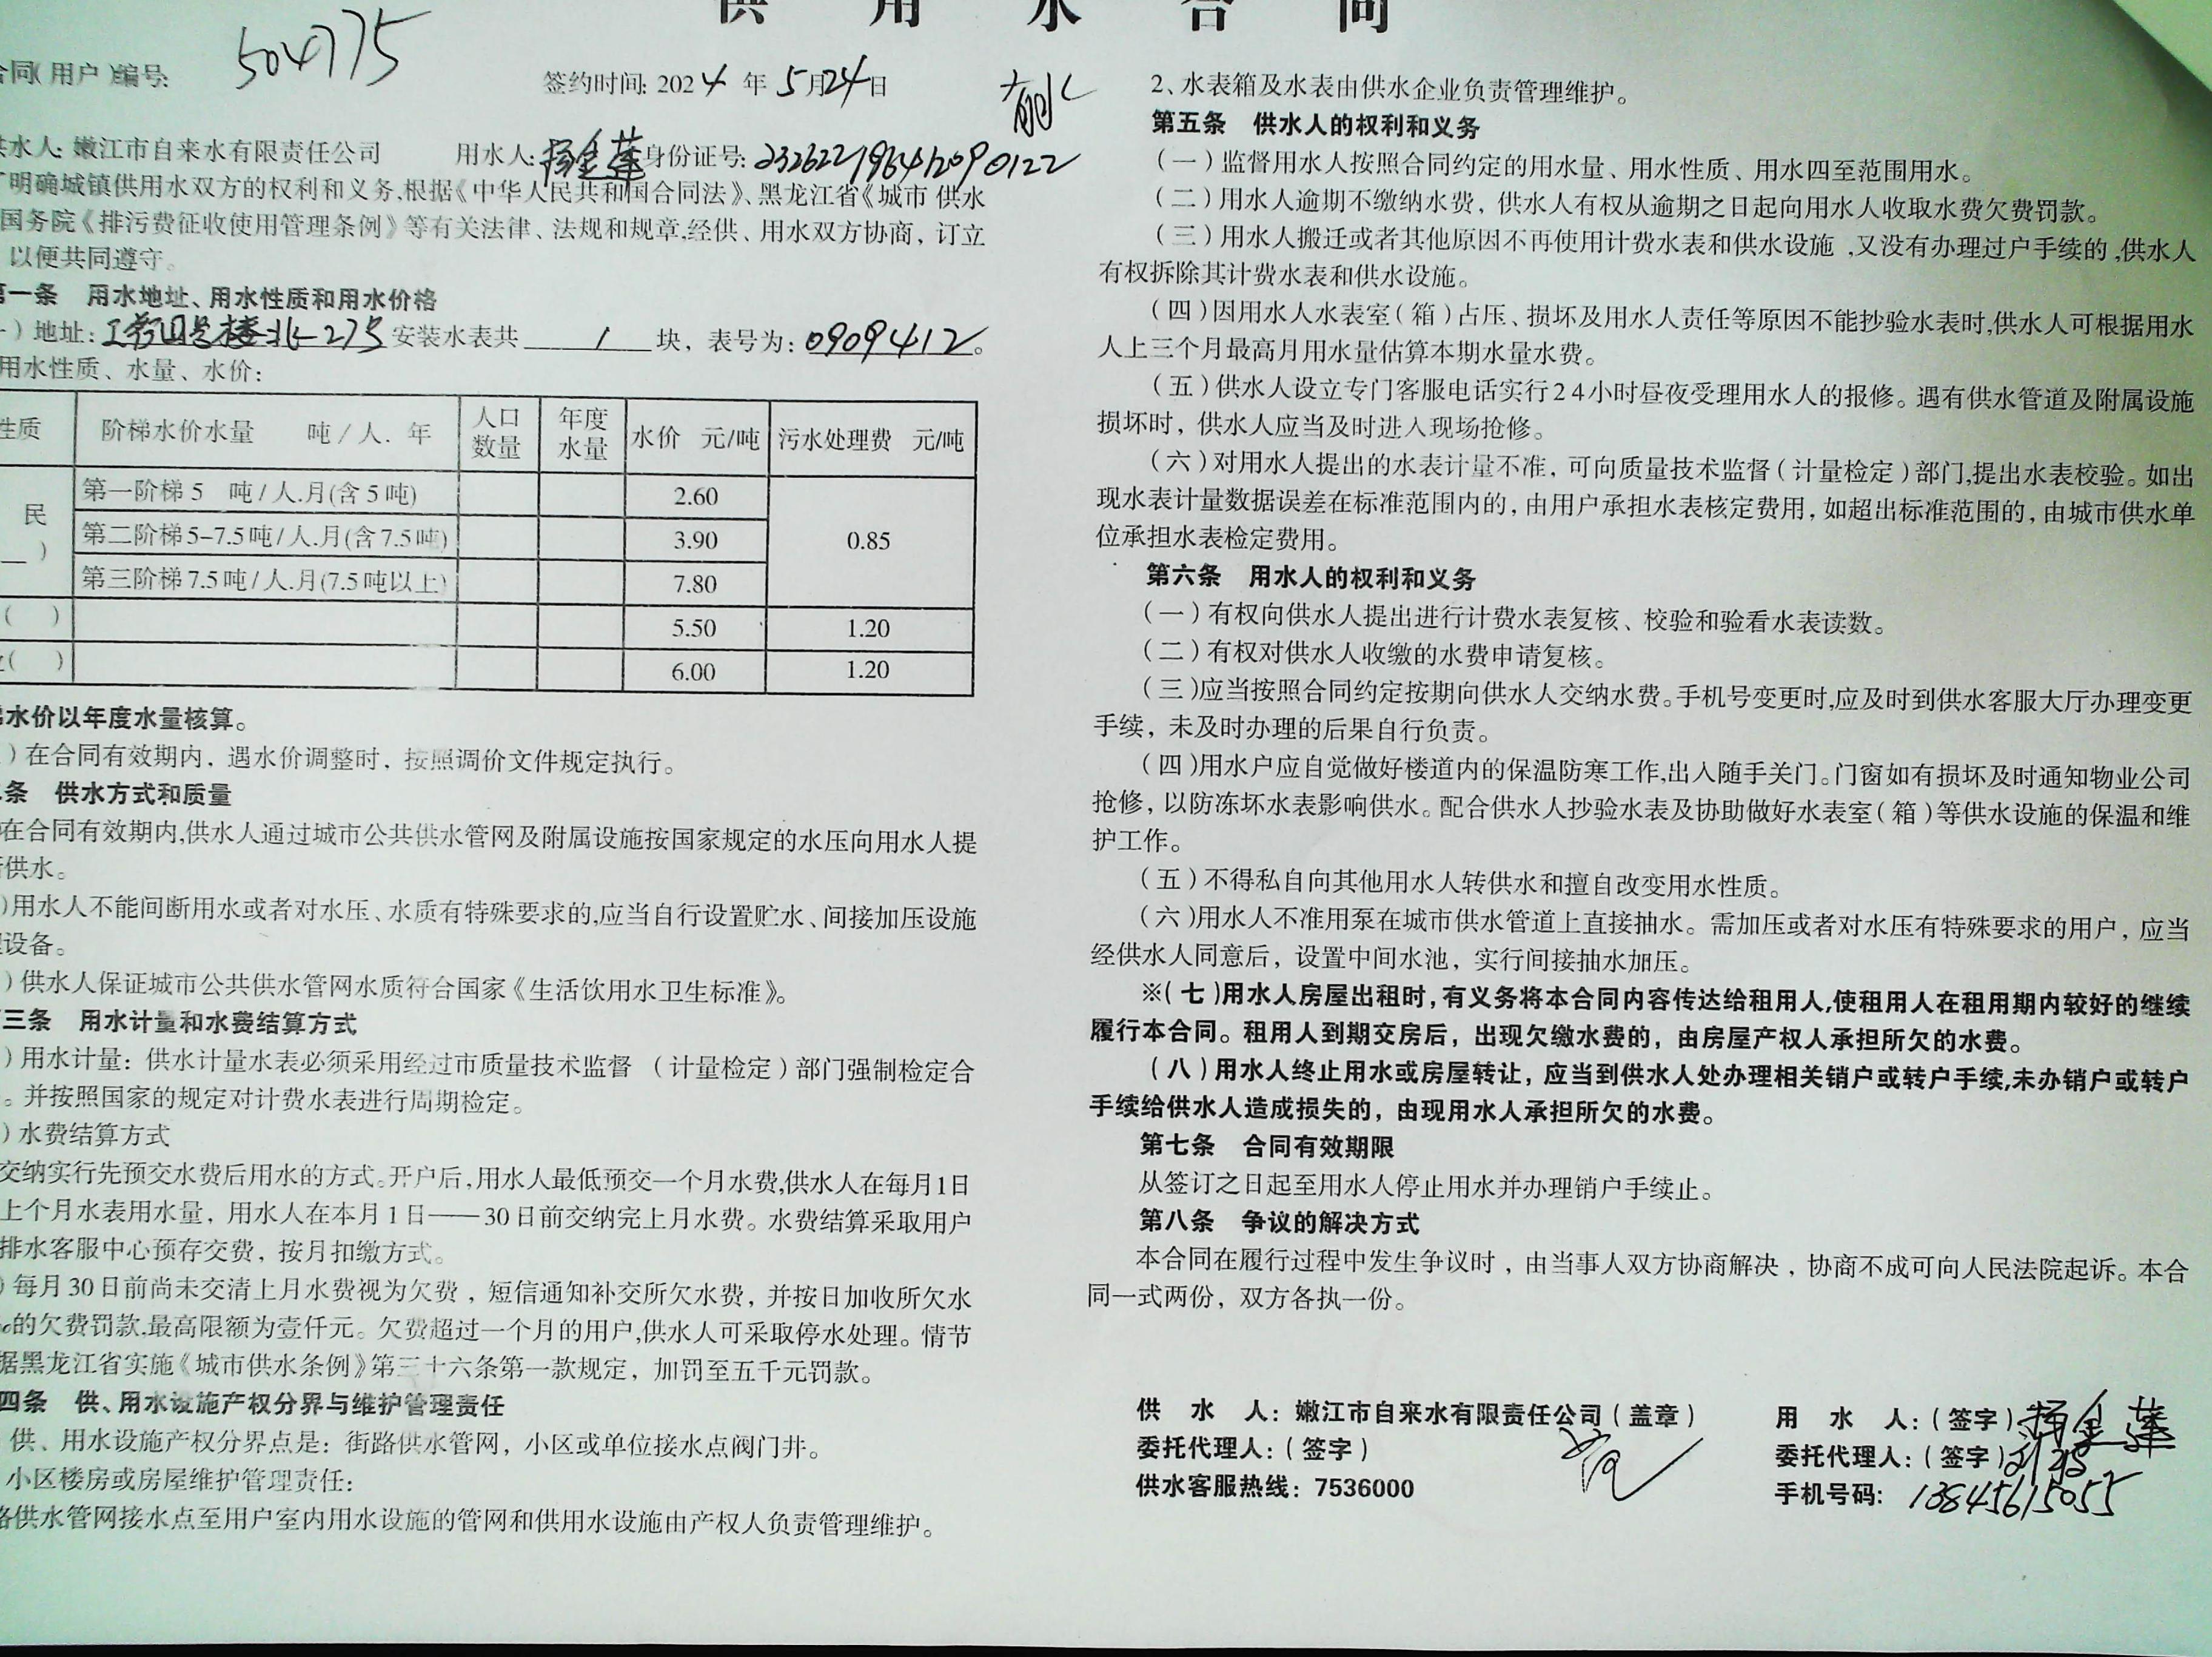 供用水合同
合同(用户)编号: 504775
签约时间: 2024年5月24日
供水人: 嫩江市自来水有限责任公司 用水人: 杨金莲 身份证号: 232622196412090122
明确城镇供用水双方的权利和义务,根据《中华人民共和国合同法》、黑龙江省《城市 供水
国务院《排污费征收使用管理条例》等有关法律、法规和规章,经供、用水双方协商，订立
以便共同遵守。
第一条 用水地址、用水性质和用水价格
一）地址: 四号楼北-275 安装水表共 1 块，表号为: 0909412。
用水性质、水量、水价:
性质 阶梯水价水量 吨/人.年 人口数量 年度水量 水价 元/吨 污水处理费 元/吨
民 第一阶梯 5 吨/人.月(含5吨) 2.60 0.85
第二阶梯5-7.5吨/人.月(含7.5吨) 3.90
第三阶梯7.5吨/人.月(7.5吨以上) 7.80
( ) 5.50 1.20
( ) 6.00 1.20
水价以年度水量核算。
）在合同有效期内，遇水价调整时，按照调价文件规定执行。
条 供水方式和质量
在合同有效期内,供水人通过城市公共供水管网及附属设施按国家规定的水压向用水人提
供水。
)用水人不能间断用水或者对水压、水质有特殊要求的,应当自行设置贮水、间接加压设施
设备。
）供水人保证城市公共供水管网水质符合国家《生活饮用水卫生标准》。
三条 用水计量和水费结算方式
）用水计量：供水计量水表必须采用经过市质量技术监督 （计量检定）部门强制检定合
。并按照国家的规定对计费水表进行周期检定。
）水费结算方式
交纳实行先预交水费后用水的方式。开户后,用水人最低预交一个月水费,供水人在每月1日
上个月水表用水量，用水人在本月1日——30日前交纳完上月水费。水费结算采取用户
排水客服中心预存交费，按月扣缴方式。
）每月30日前尚未交清上月水费视为欠费，短信通知补交所欠水费，并按日加收所欠水
的欠费罚款,最高限额为壹仟元。欠费超过一个月的用户,供水人可采取停水处理。情节
据黑龙江省实施《城市供水条例》第三十六条第一款规定，加罚至五千元罚款。
四条 供、用水设施产权分界与维护管理责任
供、用水设施产权分界点是：街路供水管网，小区或单位接水点阀门井。
小区楼房或房屋维护管理责任:
路供水管网接水点至用户室内用水设施的管网和供用水设施由产权人负责管理维护。
2、水表箱及水表由供水企业负责管理维护。
第五条 供水人的权利和义务
（一）监督用水人按照合同约定的用水量、用水性质、用水四至范围用水。
（二）用水人逾期不缴纳水费，供水人有权从逾期之日起向用水人收取水费欠费罚款。
（三）用水人搬迁或者其他原因不再使用计费水表和供水设施,又没有办理过户手续的,供水人
有权拆除其计费水表和供水设施。
（四）因用水人水表室（箱）占压、损坏及用水人责任等原因不能抄验水表时,供水人可根据用水
人上三个月最高月用水量估算本期水量水费。
（五）供水人设立专门客服电话实行24小时昼夜受理用水人的报修。遇有供水管道及附属设施
损坏时，供水人应当及时进入现场抢修。
（六）对用水人提出的水表计量不准，可向质量技术监督（计量检定）部门,提出水表校验。如出
现水表计量数据误差在标准范围内的，由用户承担水表核定费用，如超出标准范围的，由城市供水单
位承担水表检定费用。
第六条 用水人的权利和义务
（一）有权向供水人提出进行计费水表复核、校验和验看水表读数。
（二）有权对供水人收缴的水费申请复核。
（三）应当按照合同约定按期向供水人交纳水费。手机号变更时,应及时到供水客服大厅办理变更
手续，未及时办理的后果自行负责。
（四）用水户应自觉做好楼道内的保温防寒工作,出入随手关门。门窗如有损坏及时通知物业公司
抢修，以防冻坏水表影响供水。配合供水人抄验水表及协助做好水表室（箱）等供水设施的保温和维
护工作。
（五）不得私自向其他用水人转供水和擅自改变用水性质。
（六）用水人不准用泵在城市供水管道上直接抽水。需加压或者对水压有特殊要求的用户，应当
经供水人同意后，设置中间水池，实行间接抽水加压。
※（七）用水人房屋出租时，有义务将本合同内容传达给租用人,使租用人在租用期内较好的继续
履行本合同。租用人到期交房后，出现欠缴水费的，由房屋产权人承担所欠的水费。
（八）用水人终止用水或房屋转让，应当到供水人处办理相关销户或转户手续,未办销户或转户
手续给供水人造成损失的，由现用水人承担所欠的水费。
第七条 合同有效期限
从签订之日起至用水人停止用水并办理销户手续止。
第八条 争议的解决方式
本合同在履行过程中发生争议时，由当事人双方协商解决，协商不成可向人民法院起诉。本合
同一式两份，双方各执一份。
供 水 人：嫩江市自来水有限责任公司（盖章）
委托代理人：（签字）
供水客服热线：7536000
用 水 人：（签字）杨金莲
委托代理人：（签字）
手机号码: 13845615055